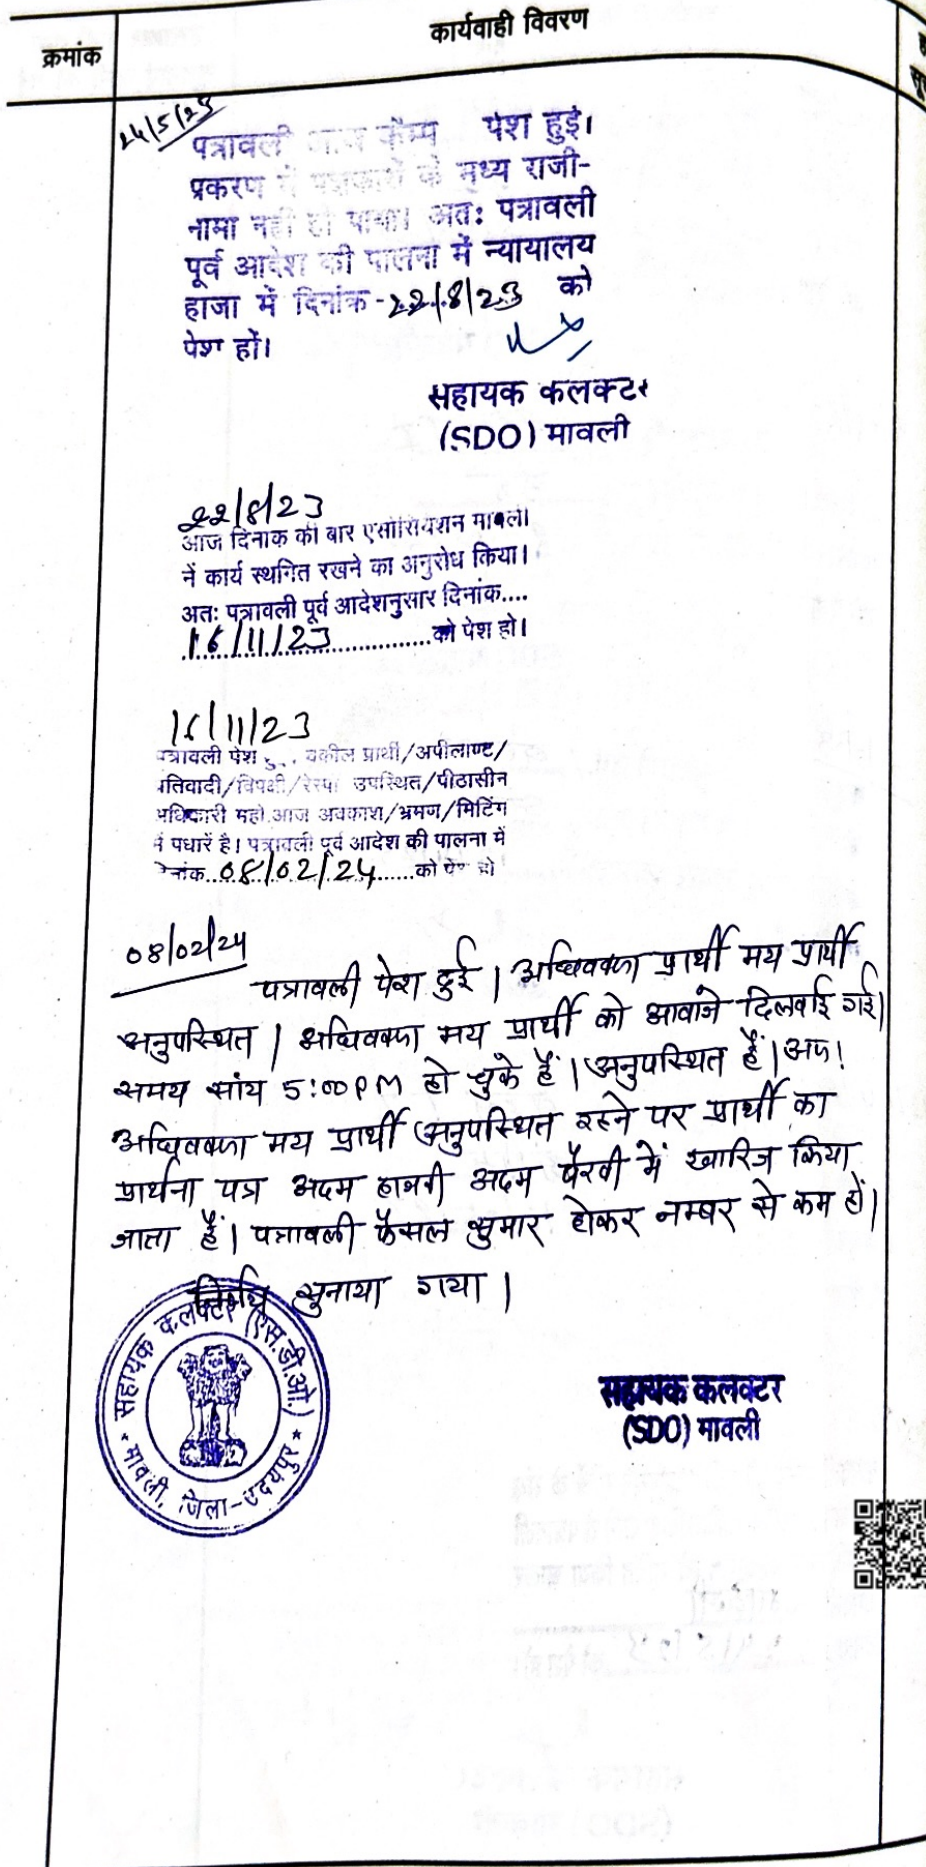 क्रमांक
कार्यवाही विवरण
24/5/23
पत्रावली आज कैम्प पेश हुई।
प्रकरण में पक्षकारों के मध्य राजी-
नामा नहीं हो पाया। अतः पत्रावली
पूर्व आदेश की पालना में न्यायालय
हाजा में दिनांक-22/8/23 को
पेश हों।
सहायक कलक्टर
(SDO) मावली
22/8/23
आज दिनाक की बार एसोसियशन मावली
नें कार्य स्थगित रखने का अनुरोध किया।
अतः पत्रावली पूर्व आदेशनुसार दिनांक....
16/11/23 को पेश हो।
16/11/23
पत्रावली पेश हुई. वकील प्रार्थी/अपीलाण्ट/
प्रतिवादी/विपक्षी/रेस्पा उपस्थित/पीठासीन
अधिकारी महो.आज अवकाश/भ्रमण/मिटिंग
में पधारें है। पत्रावली पूर्व आदेश की पालना में
दिनांक..08/02/24......को पेश हो
08/02/24
पत्रावली पेश हुई। अधिवक्ता प्रार्थी मय प्रार्थी
अनुपस्थित। अधिवक्ता मय प्रार्थी को आवाजे दिलवाई गई।
समय सांय 5:00PM हो चुके हैं। अनुपस्थित हैं। अतः
अधिवक्ता मय प्रार्थी अनुपस्थित रहने पर प्रार्थी का
प्रार्थना पत्र अदम हाजरी अदम पैरवी में खारिज किया
जाता हैं। पत्रावली फैसल शुमार होकर नम्बर से कम हों।
निर्णय सुनाया गया।
सहायक कलक्टर (एस.डी.ओ.)
* मावली, जिला-उदयपुर *
सहायक कलक्टर
(SDO) मावली